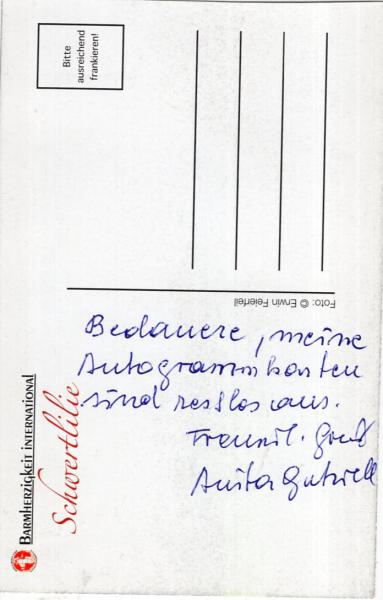 Bitte
ausreichend
frankieren!
Foto: © Erwin Feierfeil
BARMHERZIGKEIT INTERNATIONAL
Schwertlilie
Bedauere, meine
Autogrammkarten
sind restlos aus.
Freundl. Gruß
Anita Gutwell